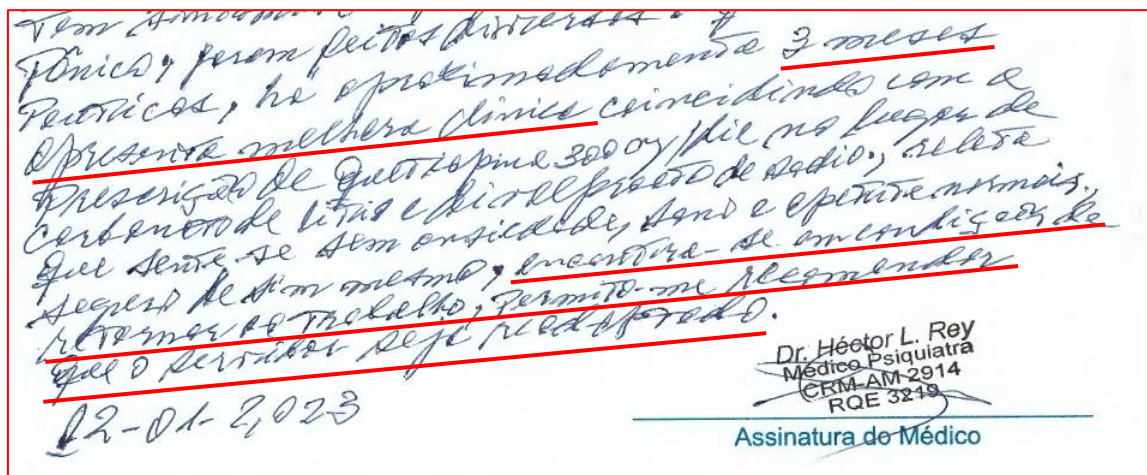 Tem
Pânico, porem feitos diversos
peuticos, ha aproximadamente 3 meses
apresenta melhora clinica coincidindo com a
prescrição de quetiapina 300 mg/die no lugar de
carbonato de litio e divalproato de sodio, relata
que sente-se sem ansiedade, sono e apetite normais,
seguro de si mesmo, encontra-se em condições de
retornar ao trabalho, Permito-me recomendar
que o servidor seja readaptado.
12-01-2,023
Dr. Héctor L. Rey
Médico Psiquiatra
CRM-AM-2914
RQE 3219
Assinatura do Médico